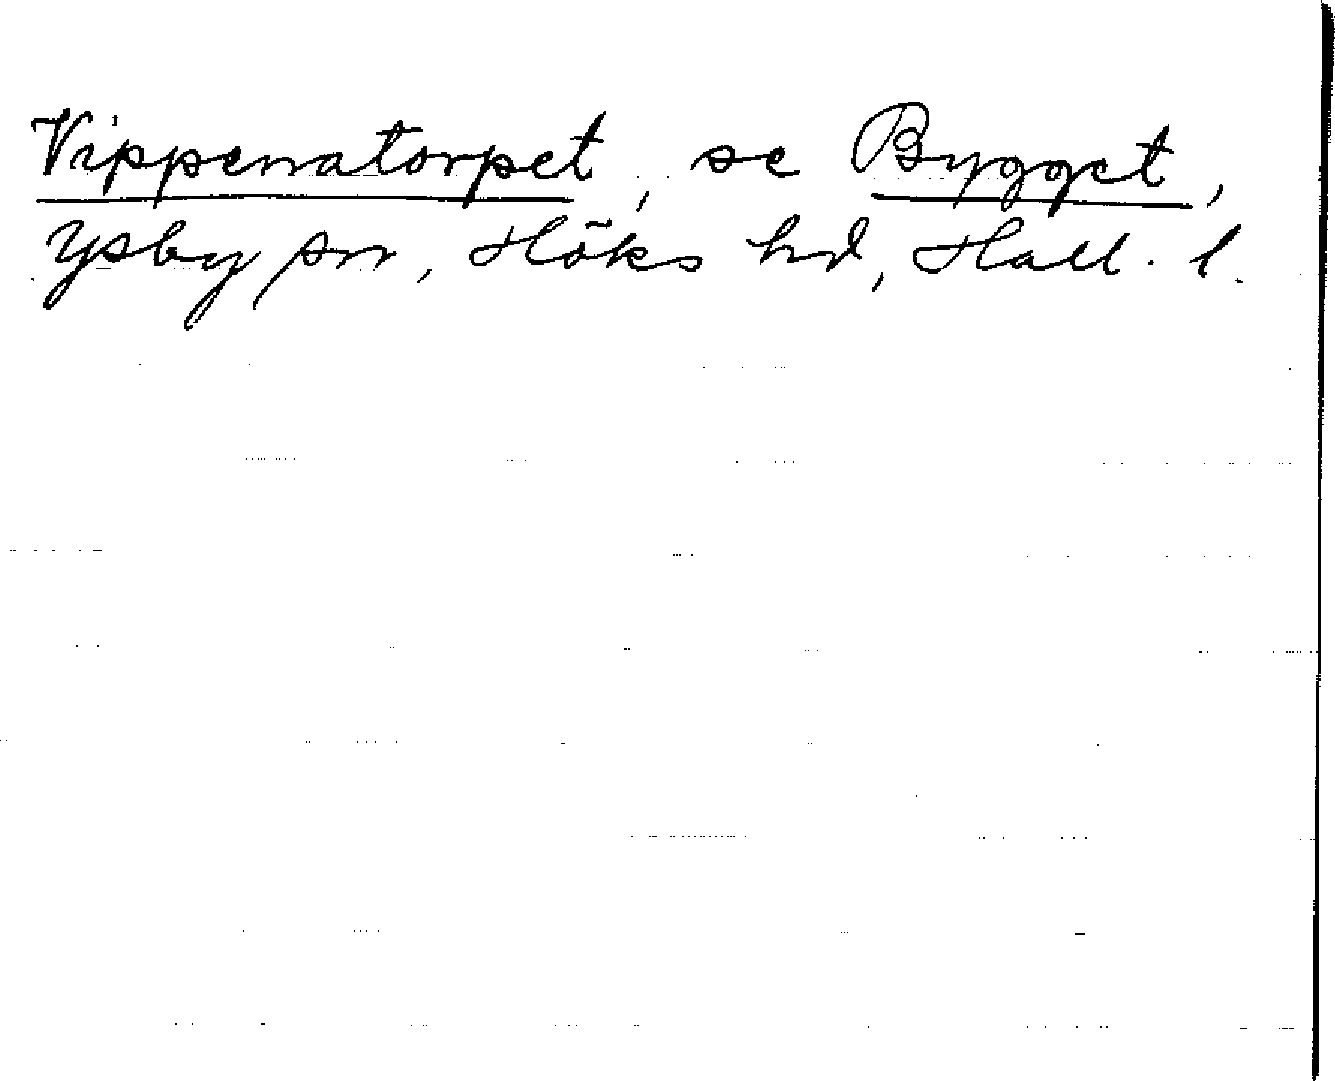 Vippenatorpet, se Bygget,
Ysby sn, Höks hd, Hall. l.